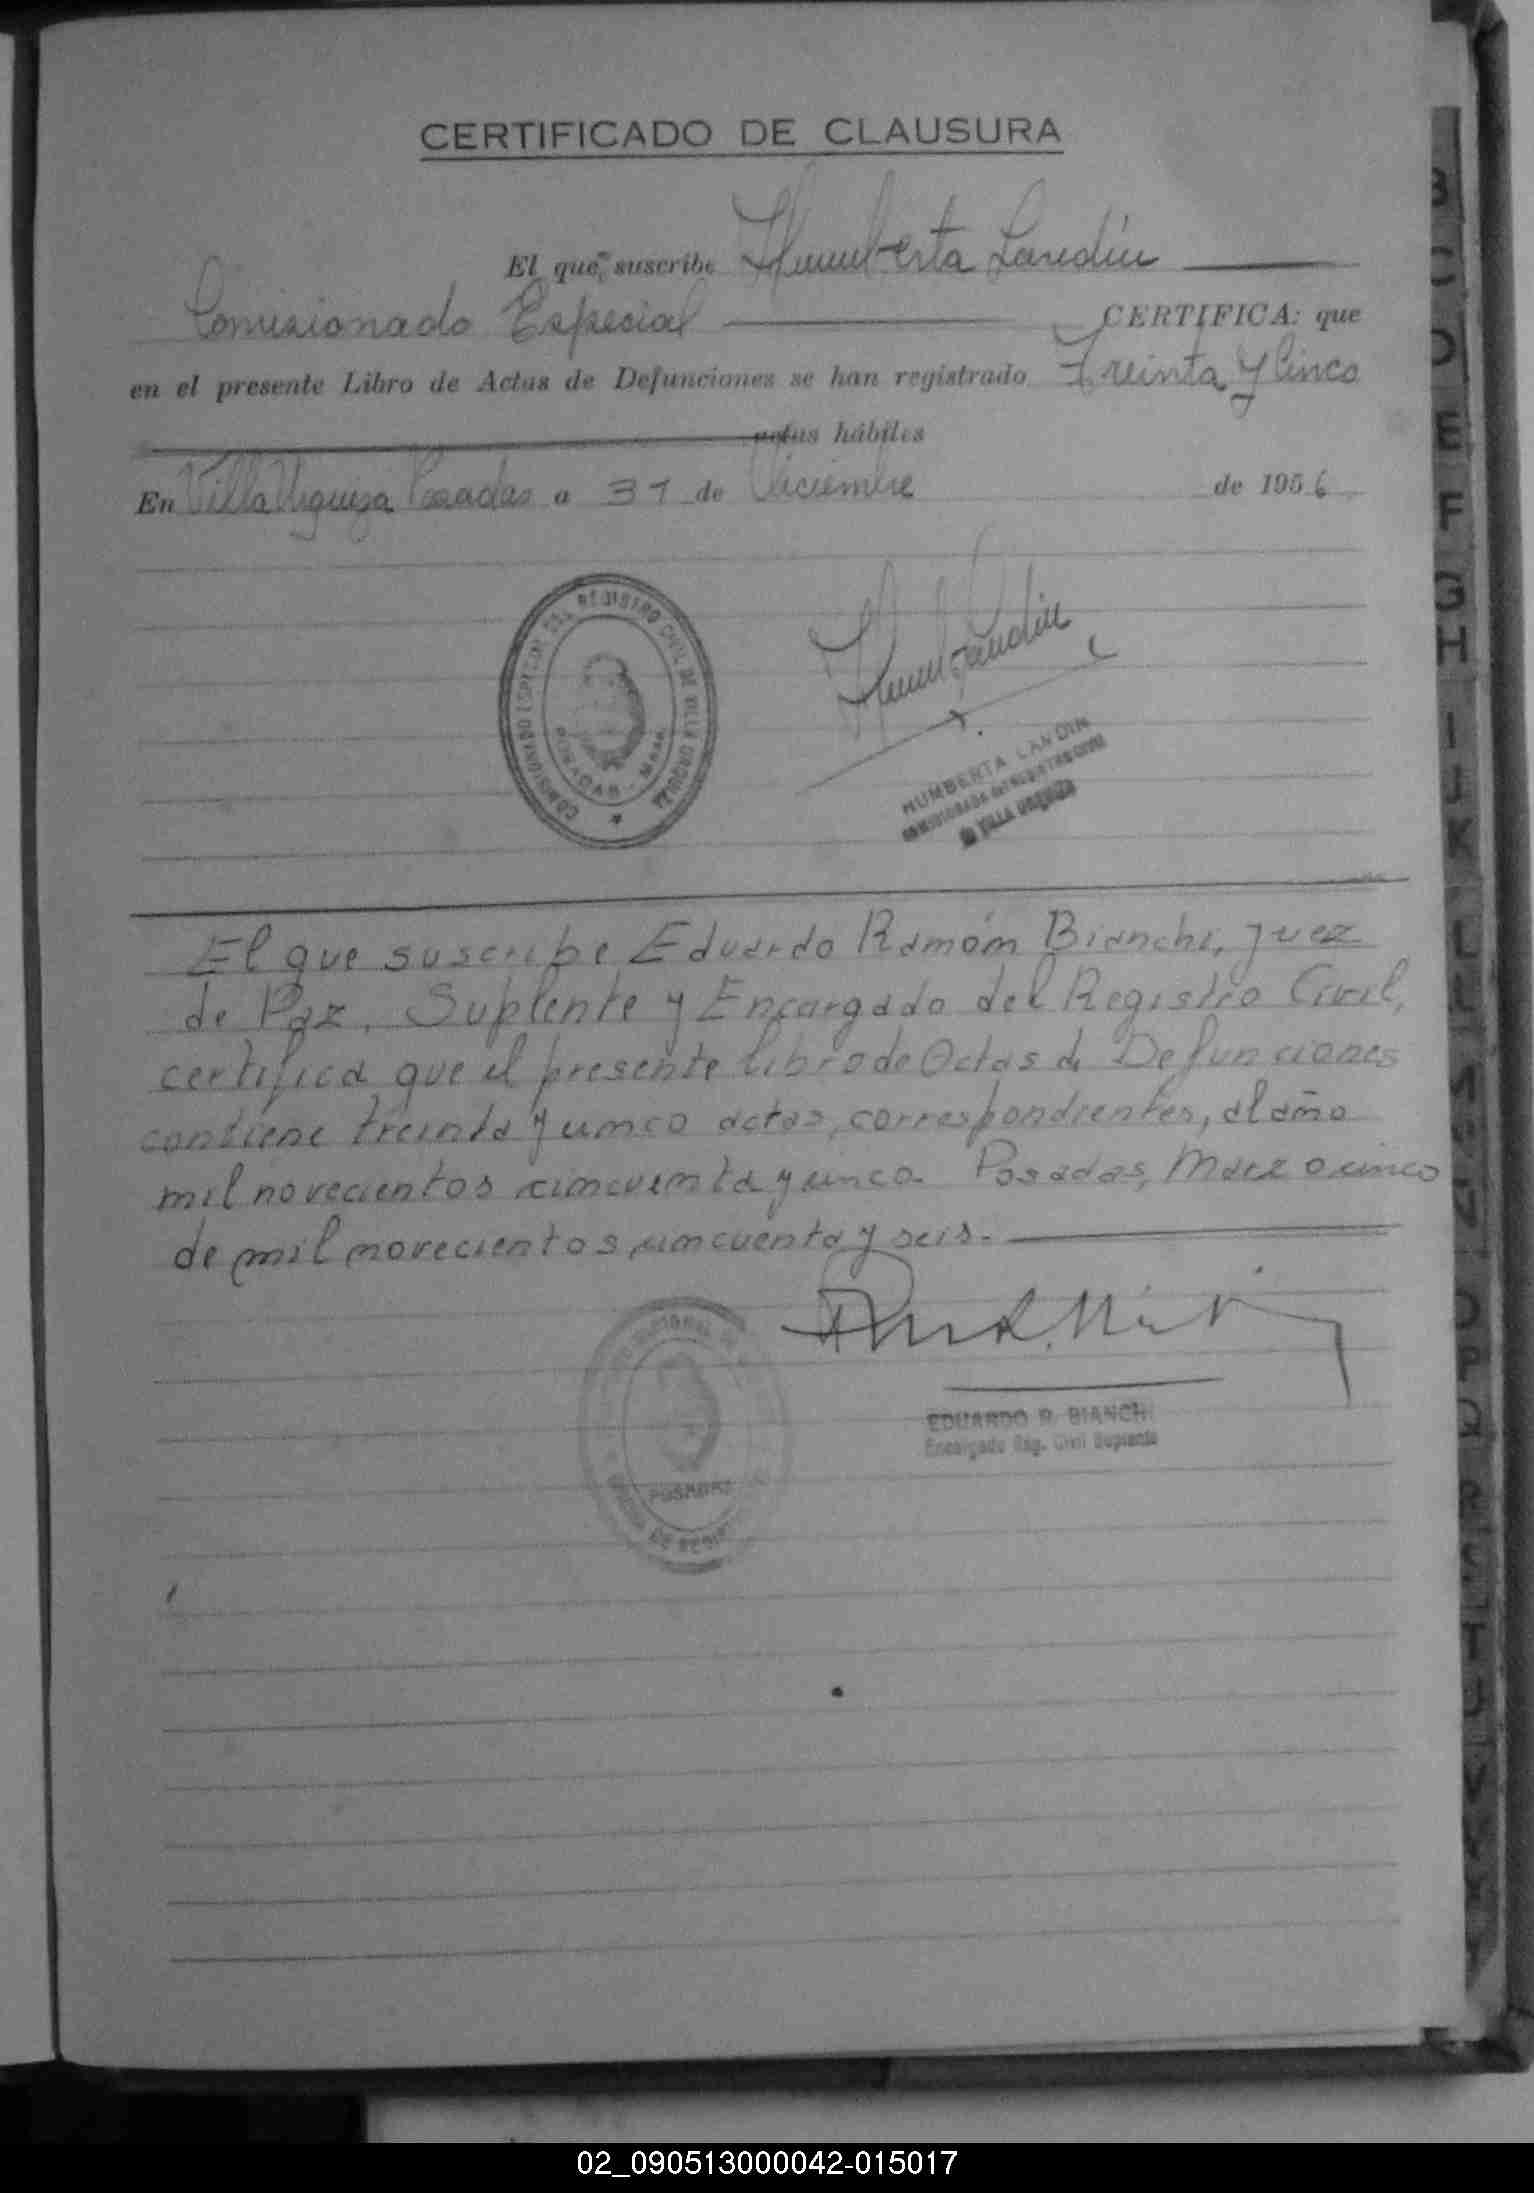 CERTIFICADO DE CLAUSURA
El que suscribe Humberta Landin
Comisionado Especial CERTIFICA: que
en el presente Libro de Actas de Defunciones se han registrado Treinta y Cinco
actas hábiles
En Villa Urquiza Posadas a 31 de Diciembre de 1956
COMISIONADO ESPECIAL DEL REGISTRO CIVIL DE VILLA URQUIZA
POSADAS - Mnes
Humb Landin
HUMBERTA LANDIN
COMISIONADA del REGISTRO CIVIL
de VILLA URQUIZA
El que suscribe Eduardo Ramón Bianchi, Juez
de Paz, Suplente y Encargado del Registro Civil,
certifica que el presente libro de Actas de Defunciones
contiene treinta y cinco actas, correspondientes, al año
mil novecientos cincuenta y cinco. Posadas, Marzo cinco
de mil novecientos cincuenta y seis.
POSADAS
EDUARDO R. BIANCHI
Encargado Reg. Civil Suplente
B
C
D
E
F
G
H
I
J
K
L
LL
M
N
Ñ
O
P
Q
R
S
T
U
V
X
Y
02_090513000042-015017